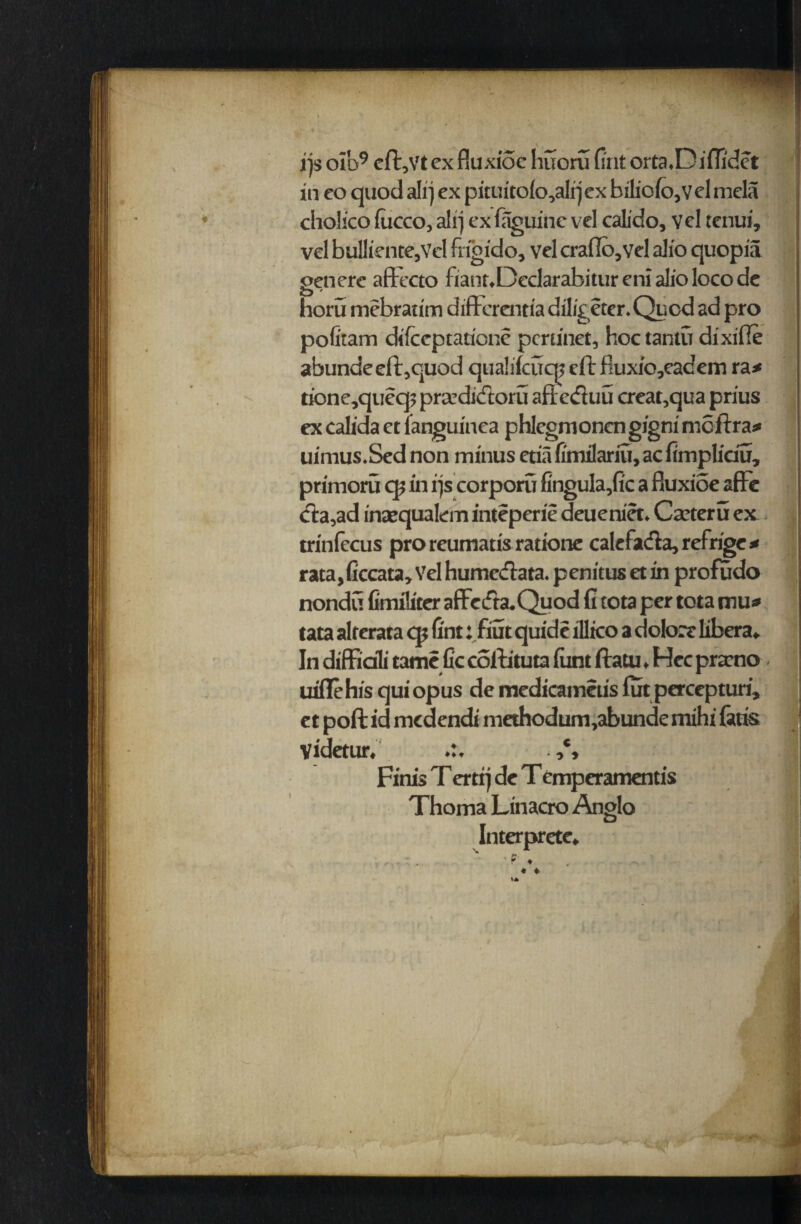 ijs oīb⁹ eſt,vt ex fluxiōe hūorū ſint orta.Diſſidēt
in eo quod alij ex pituitoſo,alij ex bilioſo,vel melā
cholico ſucco, alij ex ſāguine vel calido, vel tenui,
vel bulliente,vel frigido, vel craſſo,vel alio quopiā
genere affecto fiant.Declarabitur eni alio loco de
horū mēbratim differentia diligēter. Quod ad pro
poſitam diſceptationē pertinet, hoc tantū dixiſſe
abunde eſt,quod qualiſcūqꝫ eſt fluxio,eadem ra⸗
tione,quēqꝫ prædictorū affectuū creat,qua prius
ex calida et ſanguinea phlegmonen gigni mōſtra⸗
uimus.Sed non minus etiā ſimilariū, ac ſimpliciū,
primorū qꝫ in ijs corporū ſingula,ſic a fluxiōe affe
cta,ad inæqualem intēperiē deueniēt. Cæterū ex
trinſecus pro reumatis ratione calefacta, refrige⸗
rata,ſiccata, vel humectata. penitus et in profūdo
nondū ſimiliter affecta. Quod ſi tota per tota mu⸗
tata alterata qꝫ ſint: fiūt quidē illico a dolore libera.
In difficili tamē ſic cōſtituta ſunt ſtatu. Hec præno
uiſſe his qui opus de medicamētis ſūt percepturi,
et poſt id medendi methodum,abunde mihi ſatis
videtur.
Finis Tertij de Temperamentis
Thoma Linacro Anglo
Interprete.